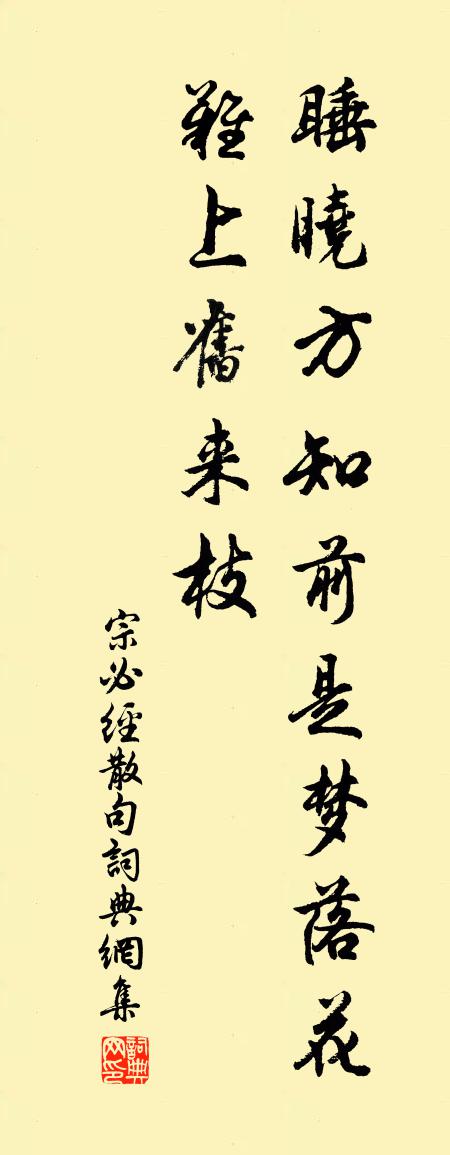 睡曉方知前是梦落花
難上舊来枝
宗必經散句詞典網集
詞典网印